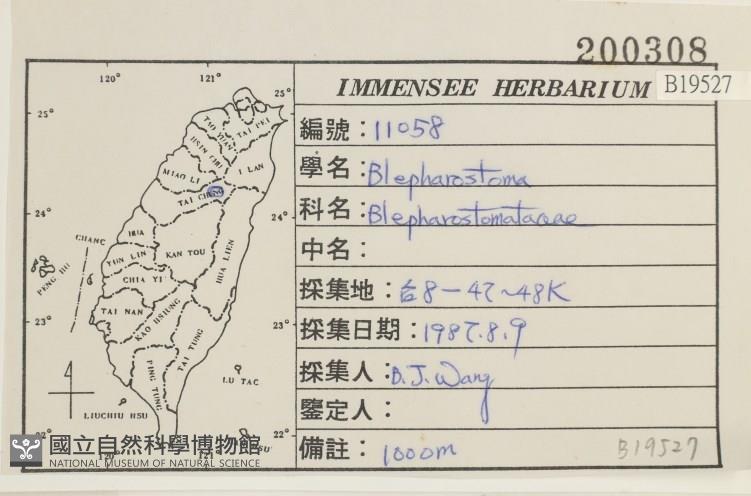 200308
IMMENSEE HERBARIUM
B19527
編號：11058
學名：Blepharostoma
科名：Blepharostomataceae
中名：
採集地：台8－47～48K
採集日期：1987.8.9
採集人：B.J.Wang
鑒定人：
備註：1000m
B19527
120°
121°
25°
25°
TAO YUAN
TAI PEI
HSIN CHU
I LAN
MIAO LI
TAI CHUNG
24°
24°
CHANG
HUA
YUN LIN
KAN TOU
HUA LIEN
PENG HU
CHIA YI
TAI NAN
KAO HSIUNG
23°
23°
TAI TUNG
PING TUNG
LU TAC
LIUCHIU HSU
22°
22°
120°
121°
國立自然科學博物館
NATIONAL MUSEUM OF NATURAL SCIENCE